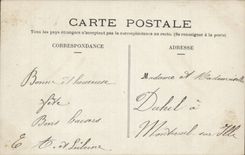 CARTE POSTALE
Tous les pays étrangers n'acceptent pas la correspondance au recto. (Se renseigner à la poste)
CORRESPONDANCE
ADRESSE
Bonne et heureuse
fête
Bons baisers
E
Madame et Mademoiselle
Duhil à
Montreuil sur Ille